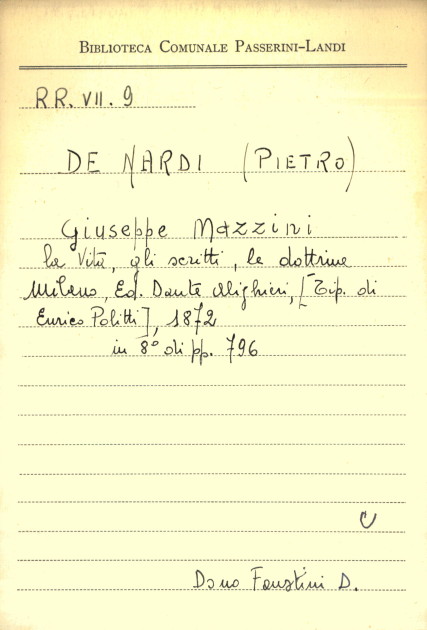 BIBLIOTECA COMUNALE PASSERINI-LANDI
RR. VII. 9
DE NARDI (PIETRO)
Giuseppe Mazzini
la Vita, gli scritti, le dottrine
Milano, Ed. Dante Alighieri, [Tip. di
Enrico Politti], 1872
in 8° di pp. 796
C
Dono Faustini D.